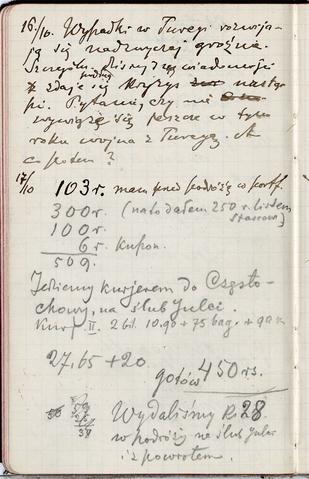 16/10. Wypadki w Turcyi rozwija-
ją się nadzwyczaj groźnie.
wiadomości
zdaje się kryzys nastą-
pi. Pytanie, czy nie
wywiąże się jeszcze w tym
roku wojna z Turcyą. A
co potem?
17/10 103 r. mam przed podróżą w portf.
300 r. (na to dałem 250 r. listem
100 r. Stasiowi)
6 r. kupon.
509.
Jedziemy kurjerem do Często-
chowy, na ślub Julci.
Kurj. II. 2 bil. 10,90 + 75 bag. +
27,65 + 20
gotów. 450 rs.
Wydaliśmy Rs 28
w podróży na ślub Julci
i z powrotem.